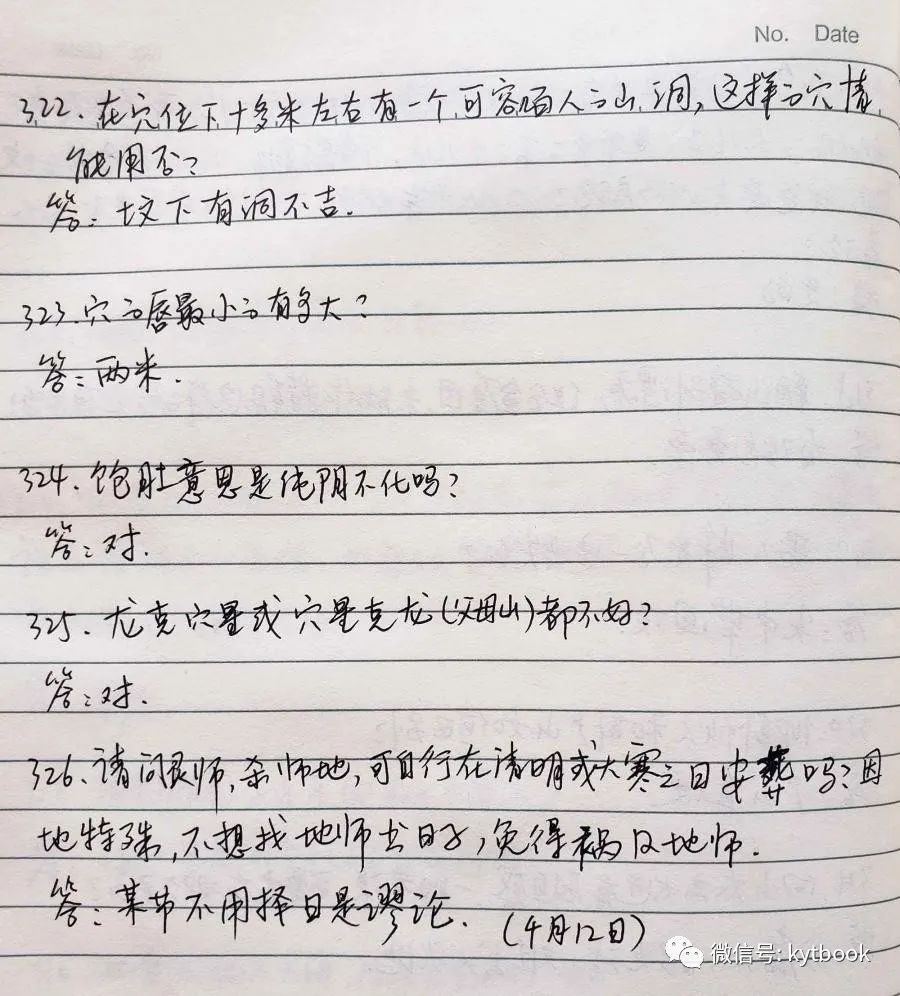 No. Date
322. 在穴位下十多米左右有一个可容百人的山洞,这样的穴情
能用否?
答:坟下有洞不吉.
323. 穴的唇最小的有多大?
答:两米.
324. 饱肚意思是纯阴不化吗?
答:对.
325. 龙克穴星或穴星克龙(父母山)都不好?
答:对.
326. 请问良师,杀师地,可自行在清明或大寒之日安葬吗?因
地特殊,不想找地师出日子,免得祸及地师.
答:某节不用择日是谬论. (4月12日)
微信号: kytbook